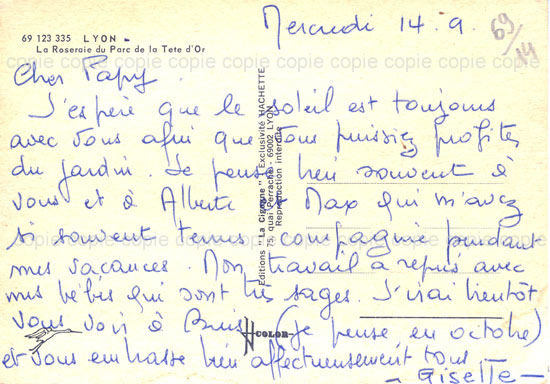 Mercredi 14.9.
69/14
69 123 335 LYON
La Roseraie du Parc de la Tete d'Or
copie copie copie copie copie copie copie
Cher Papy.
J'espère que le soleil est toujours
avec vous afin que vous puissiez profiter
du jardin. Je pense bien souvent à
vous et à Alberte et Max qui m'avez
si souvent tenus compagnie pendant
mes vacances. Mon travail a repris avec
mes bébés qui sont très sages. J'irai bientôt
vous voir à (je pense en octobre)
et vous embrasse bien affectueusement tous.
- Gisette -
Editions "La Cigogne" Exclusivité HACHETTE
75, quai Perrache - 69002 LYON
Reproduction interdite
COLOR